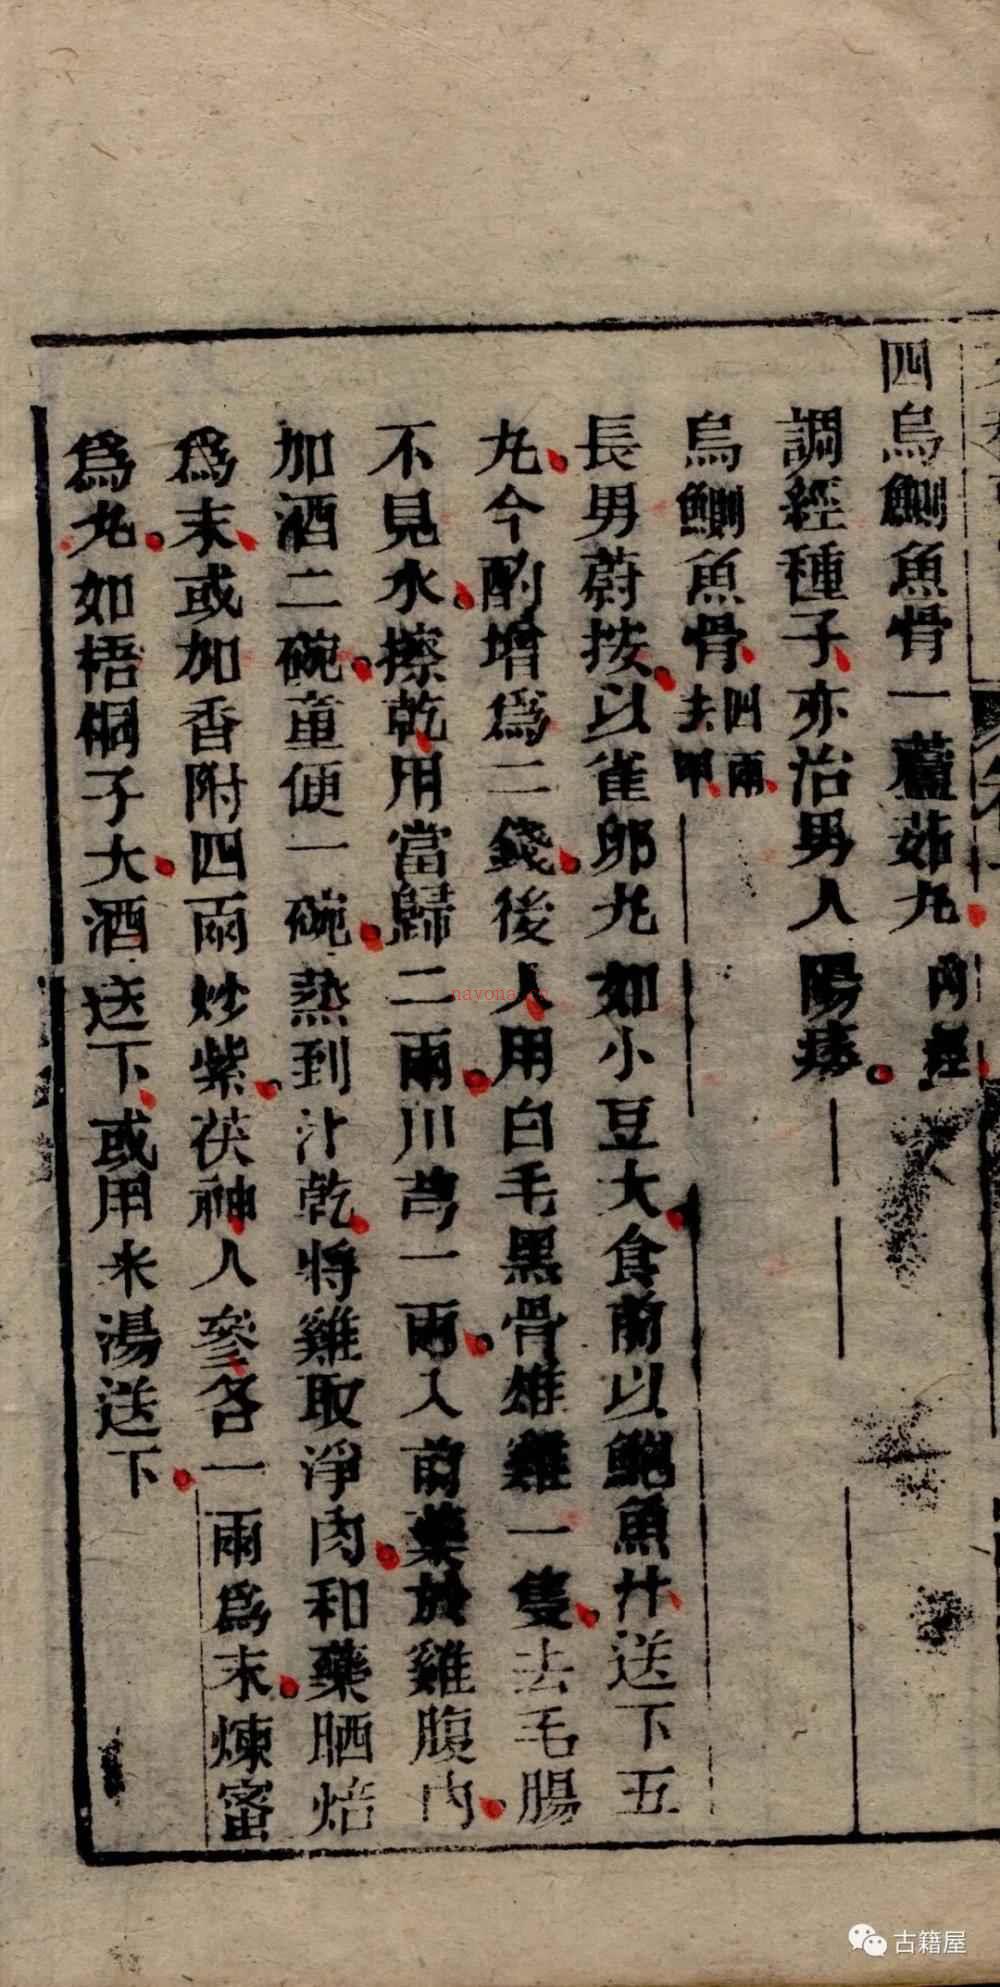 四烏鰂魚骨一藘茹丸 內經
調經種子亦治男人陽痿
烏鰂魚骨 四兩去甲
長男蔚按以雀卵丸如小豆大食前以鮑魚汁送下五
丸今酌增爲二錢後人用白毛黑骨雄雞一隻去毛腸
不見水擦乾用當歸二兩川芎一兩入前藥於雞腹內
加酒二碗童便一碗蒸到汁乾將雞取淨肉和藥晒焙
爲末或加香附四兩炒紫茯神人參各一兩爲末煉蜜
爲丸如梧桐子大酒送下或用米湯送下
navona.cn
古籍屋